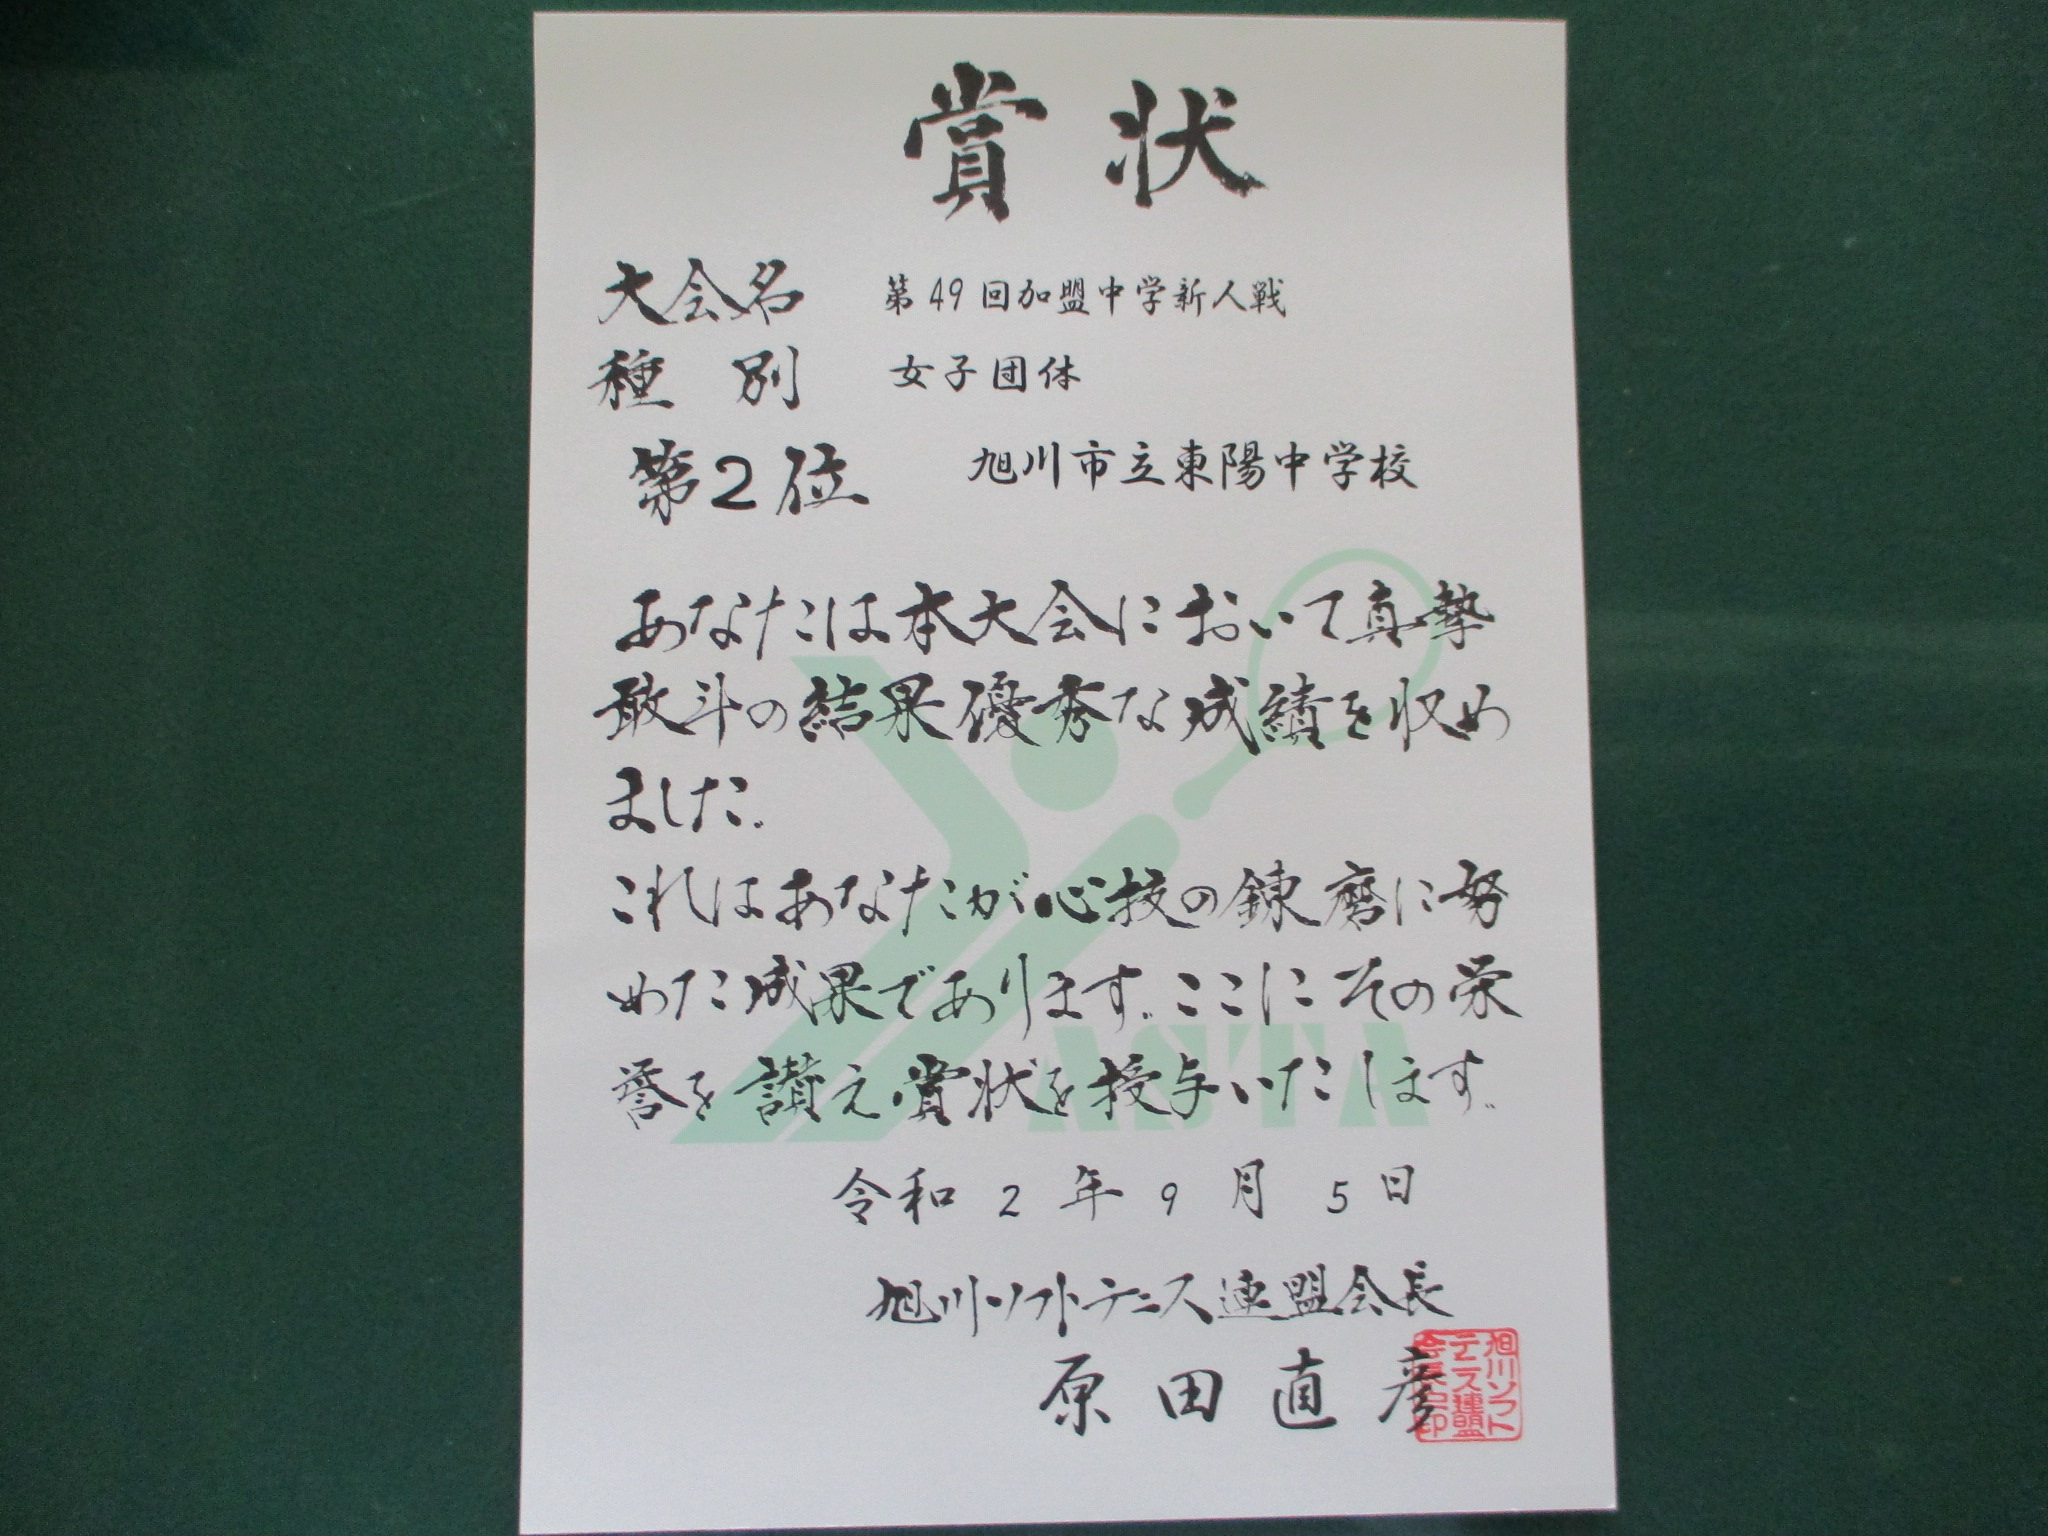 賞状
大会名 第49回加盟中学新人戦
種別 女子団体
第2位 旭川市立東陽中学校
あなたは本大会において真摯
敢斗の結果優秀な成績を収め
ました。
これはあなたが心技の錬磨に努
めた成果であります。ここにその栄
誉を讃え賞状を授与いたします。
ASTA
令和2年9月5日
旭川ソフトテニス連盟会長
原田直彦
旭川ソフト
テニス連盟
会長之印